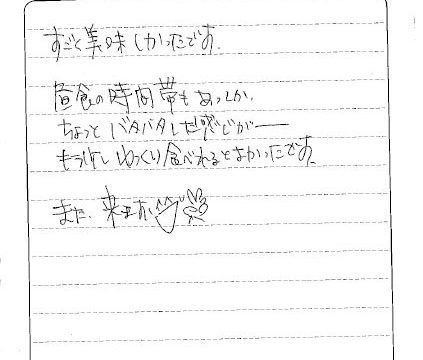 すごく美味しかったです。
昼食の時間帯もあってか、
ちょっとバタバタした感じが――
もう少しゆっくり食べれるとよかったです。
また、来ます